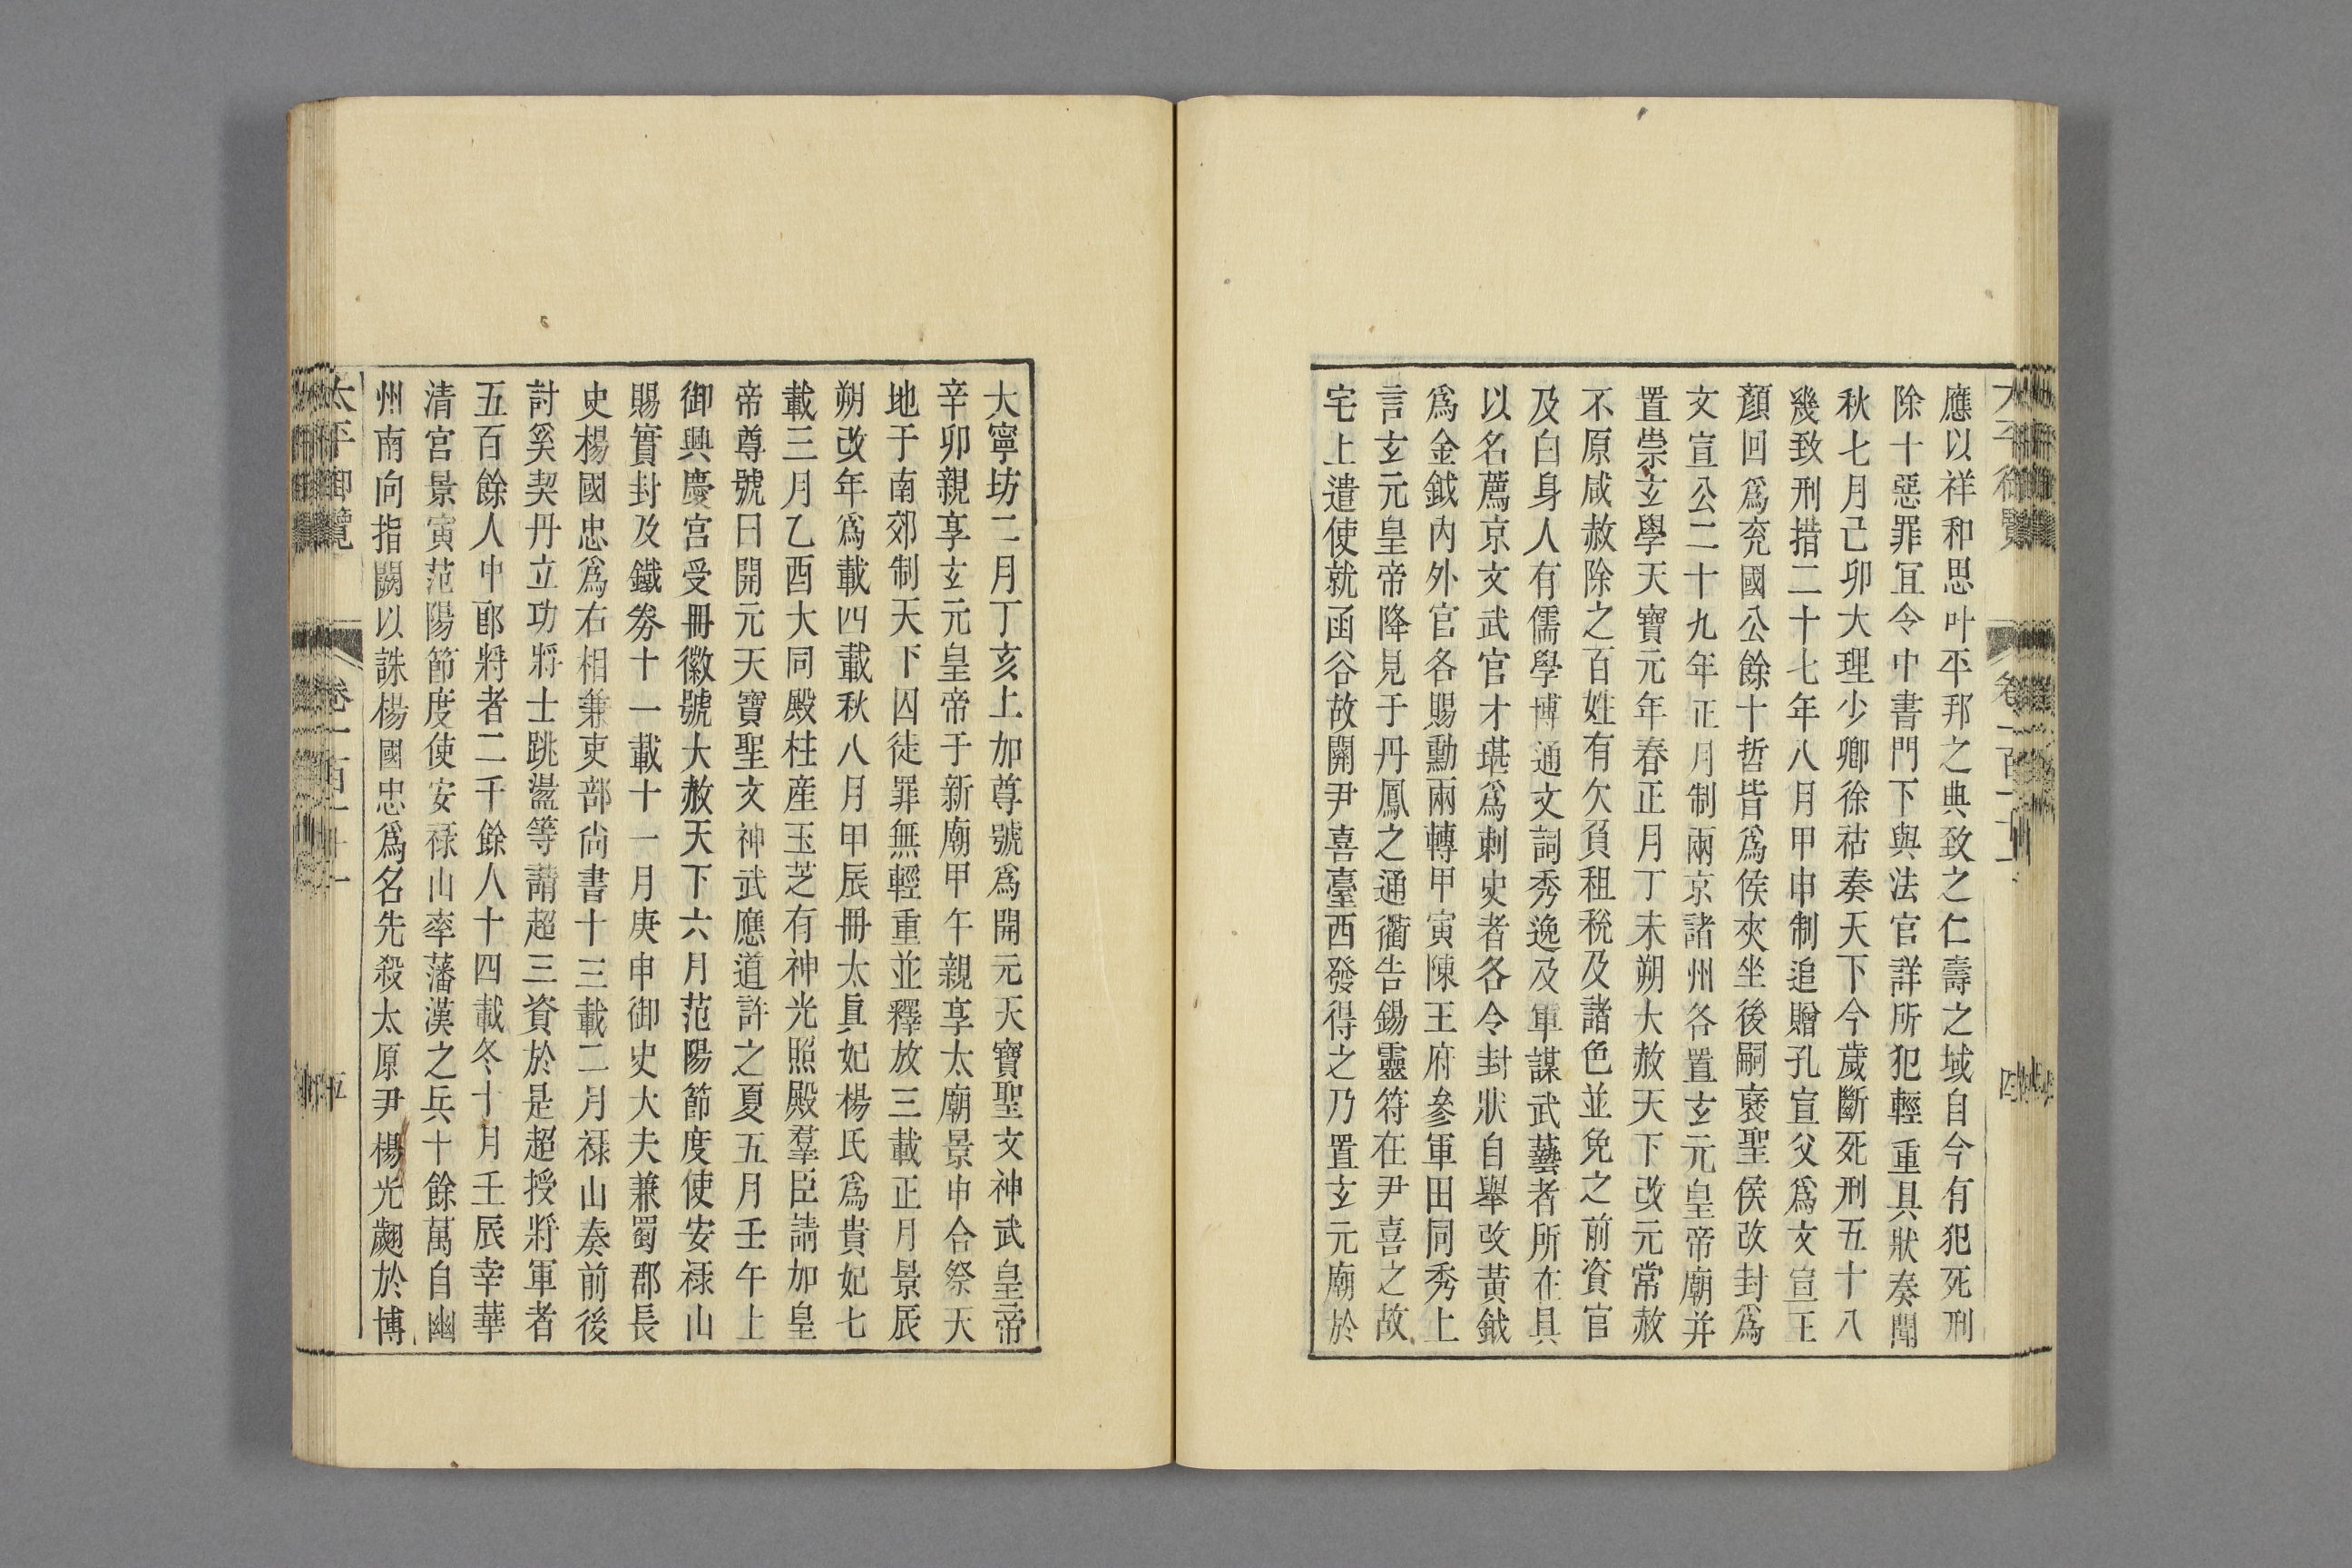 應以祥和思叶平邦之典致之仁壽之域自今有犯死刑
除十惡罪宜令中書門下與法官詳所犯輕重具狀奏聞
秋七月己卯大理少卿徐祜奏天下今歲斷死刑五十八
幾致刑措二十七年八月甲申制追贈孔宣父爲文宣王
顏回爲兖國公餘十哲皆爲侯夾坐後嗣襃聖侯改封爲
文宣公二十九年正月制兩京諸州各置玄元皇帝廟并
置崇玄學天寶元年春正月丁未朔大赦天下改元常赦
不原咸赦除之百姓有欠負租稅及諸色並免之前資官
及白身人有儒學博通文詞秀逸及軍謀武藝者所在具
以名薦京文武官才堪爲刺史者各令封狀自舉改黃鉞
爲金鉞內外官各賜勳兩轉甲寅陳王府參軍田同秀上
言玄元皇帝降見于丹鳳之通衢告錫靈符在尹喜之故
宅上遣使就函谷故關尹喜臺西發得之乃置玄元廟於
大寧坊二月丁亥上加尊號爲開元天寶聖文神武皇帝
辛卯親享玄元皇帝于新廟甲午親享太廟景申合祭天
地于南郊制天下囚徒罪無輕重並釋放三載正月景辰
朔改年爲載四載秋八月甲辰冊太真妃楊氏爲貴妃七
載三月乙酉大同殿柱產玉芝有神光照殿羣臣請加皇
帝尊號曰開元天寶聖文神武應道許之夏五月壬午上
御興慶宮受冊徽號大赦天下六月范陽節度使安祿山
賜實封及鐵劵十一載十一月庚申御史大夫兼蜀郡長
史楊國忠爲右相兼吏部尚書十三載二月祿山奏前後
討奚契丹立功將士跳盪等請超三資於是超授將軍者
五百餘人中郎將者二千餘人十四載冬十月壬辰幸華
清宮景寅范陽節度使安祿山率藩漢之兵十餘萬自幽
州南向指闕以誅楊國忠爲名先殺太原尹楊光翽於博
太平御覽 卷一百十一 五